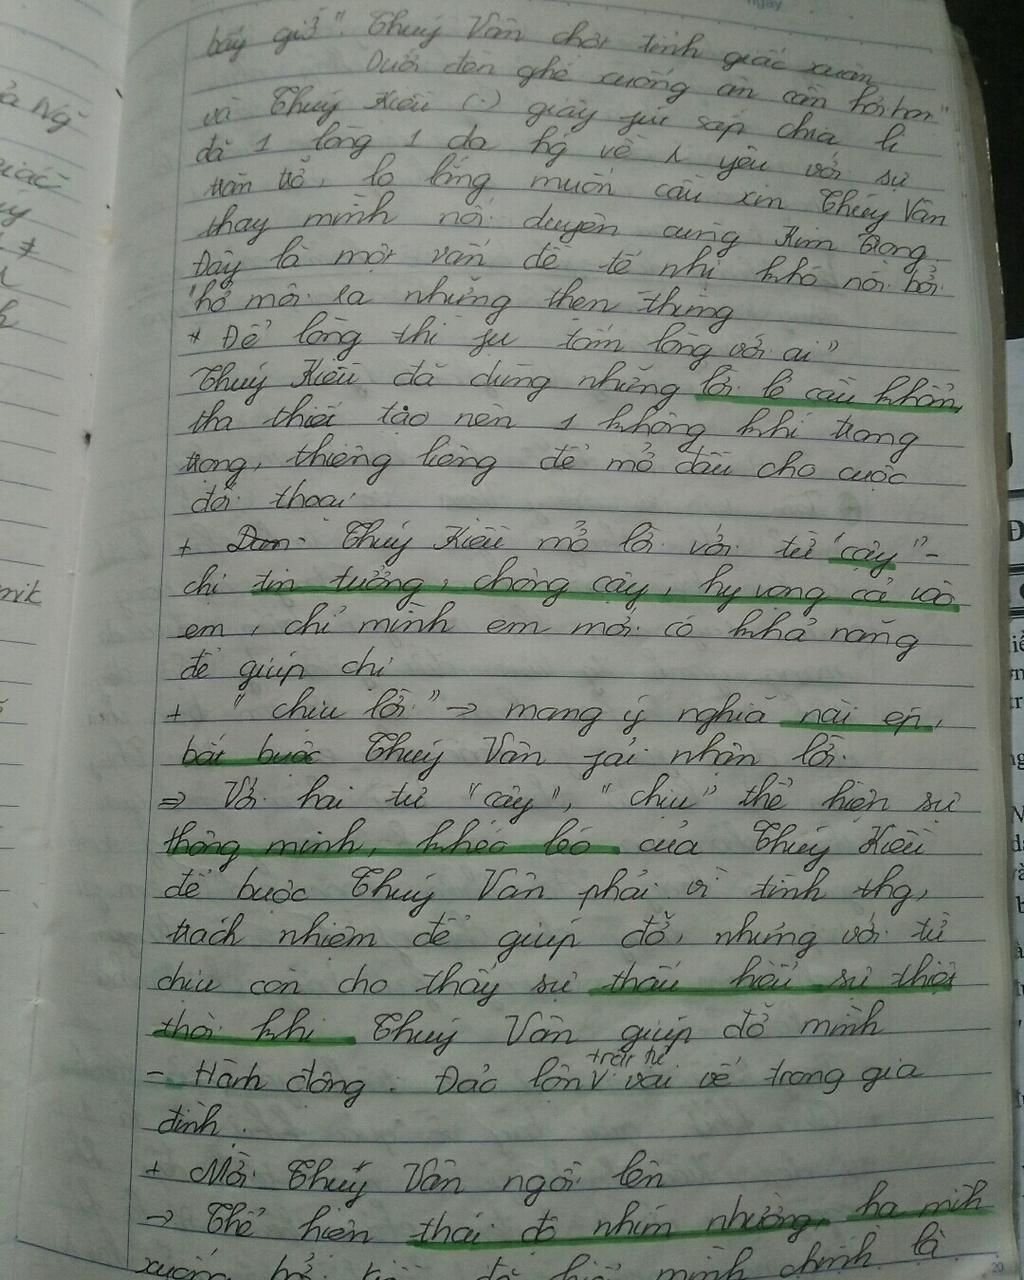 bấy giờ". Thuý Vân chợt tỉnh giấc xuân
Dưới đèn ghé xuống ân cần hỏi han"
và Thuý Kiều (.) giây fút sắp chia li
đã 1 lòng 1 dạ hg về t yêu với sự
trăn trở, lo lắng muốn cầu xin Thuý Vân
thay mình nối duyên cùng Kim Trọng.
Đây là một vấn đề tế nhị khó nói bởi
"hở môi ra những thẹn thùng
* Để lòng thì fụ tấm lòng với ai"
Thuý Kiều đã dùng những lời lẽ cầu khẩn,
tha thiết tạo nên 1 không khí trang
trọng, thiêng liêng để mở đầu cho cuộc
đối thoại
+ Thuý Kiều mở lời với từ "cậy" -
chị tin tưởng, chông cậy, hy vọng cả vào
em, chỉ mình em mới có khả năng
để giúp chị
+ "chịu lời" -> mang ý nghĩa nài ép,
bắt buộc Thuý Vân fải nhận lời.
=> Với hai từ "cậy", "chịu" thể hiện sự
thông minh, khéo léo của Thuý Kiều
để buộc Thuý Vân phải vì tình thg,
trách nhiệm để giúp đỡ, nhưng với từ
chịu còn cho thấy sự thấu hiểu sự thiệt
thòi khi Thuý Vân giúp đỡ mình
- Hành động: Đảo lộn trật tự vai vế trong gia
đình.
+ Mời Thuý Vân ngồi lên
-> Thể hiện thái độ nhún nhường, hạ mình
xuống bởi Kiều đã hiểu mình chính là